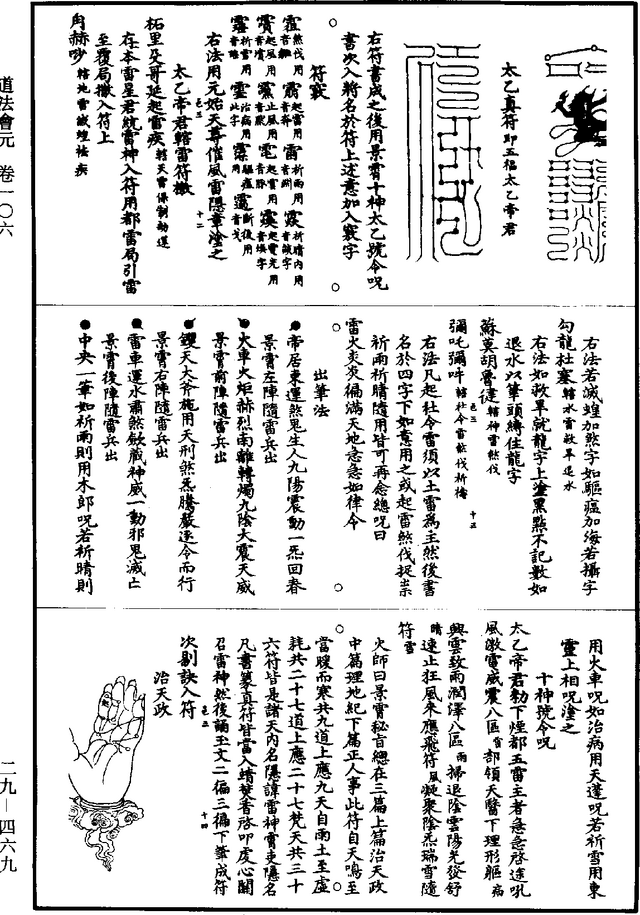 太乙真符即五福太乙帝君
右符書成之後用景霄十神太乙號令呪
書次入將名於符上述意加入竅字
符竅
右法用元始天尊催風雷隱章塗之
太乙帝君轄雷符檄
柘里及哥延起雷疾轄天雷保制劫運
在本雷星君紋雷神入符用都雷局引雷
至覆局檄入符上
角赫吵轄地雷滅蝗祛疾
右法若滅蝗加煞字如驅瘟加侮若攝字
勾龍杜塞轄水雷救旱退水
右法如救旱就龍字上塗黑點不記數如
退水以筆頭縛住龍字
蘇莫胡魯達轄神雷煞伐
彌吒彌吽轄社令雷煞伐祈禱
右法凡起社令雷須以土雷為主然後書
名於四字下如意用之或起雷煞伐捉祟
祈雨祈晴隨用皆可再念總呪曰
雷火炎炎徧滿天地急急如律令
出筆法
●帝居東運煞鬼生人九陽震動一炁回春
景霄左陣隨雷兵出
●火車火炬赫烈南離轉燭九陰大震天威
景霄前陣隨雷兵出
●钁天大斧施用天刑煞炁騰嚴逐令而行
景霄右陣隨雷兵出
●雷車運水肅煞歛藏神威一動邪鬼滅亡
景霄後陣隨雷兵出
●中央一筆如祈雨則用木郎呪若祈晴則
用火車呪如治病用天蓬呪若祈雪用東
靈上相呪塗之
十神號令呪
太乙帝君勅下煙都五雷主者急急啓途吼
風激電威震八區雷部領天醫下理形軀病
興雲致雨潤澤八區雨掃退陰雲陽光發舒
晴速止狂風來應飛符風凝聚陰炁瑞雪隨
符雪
火師曰景霄秘旨總在三篇上篇治天政
中篇理地紀下篇正人事此符自天鳴至
當腹而寒共九道上應九天自雨土至虛
耗共二十七道上應二十七梵天共三十
六符皆是諸天內名隱諱雷神雷吏隱名
凡書篆真符皆當入靖焚香啓叩虔心關
召雷神然後誦玉文二徧三徧下筆成符
次剔訣入符
治天政
道法會元 卷一〇六
二九－四六九